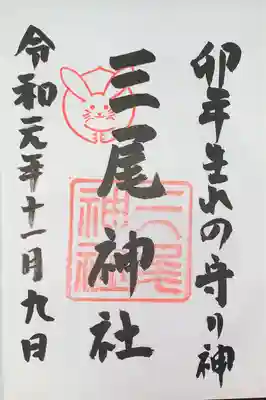 卯年生れの守り神
三尾神社
三尾
神社
令和元年十一月九日